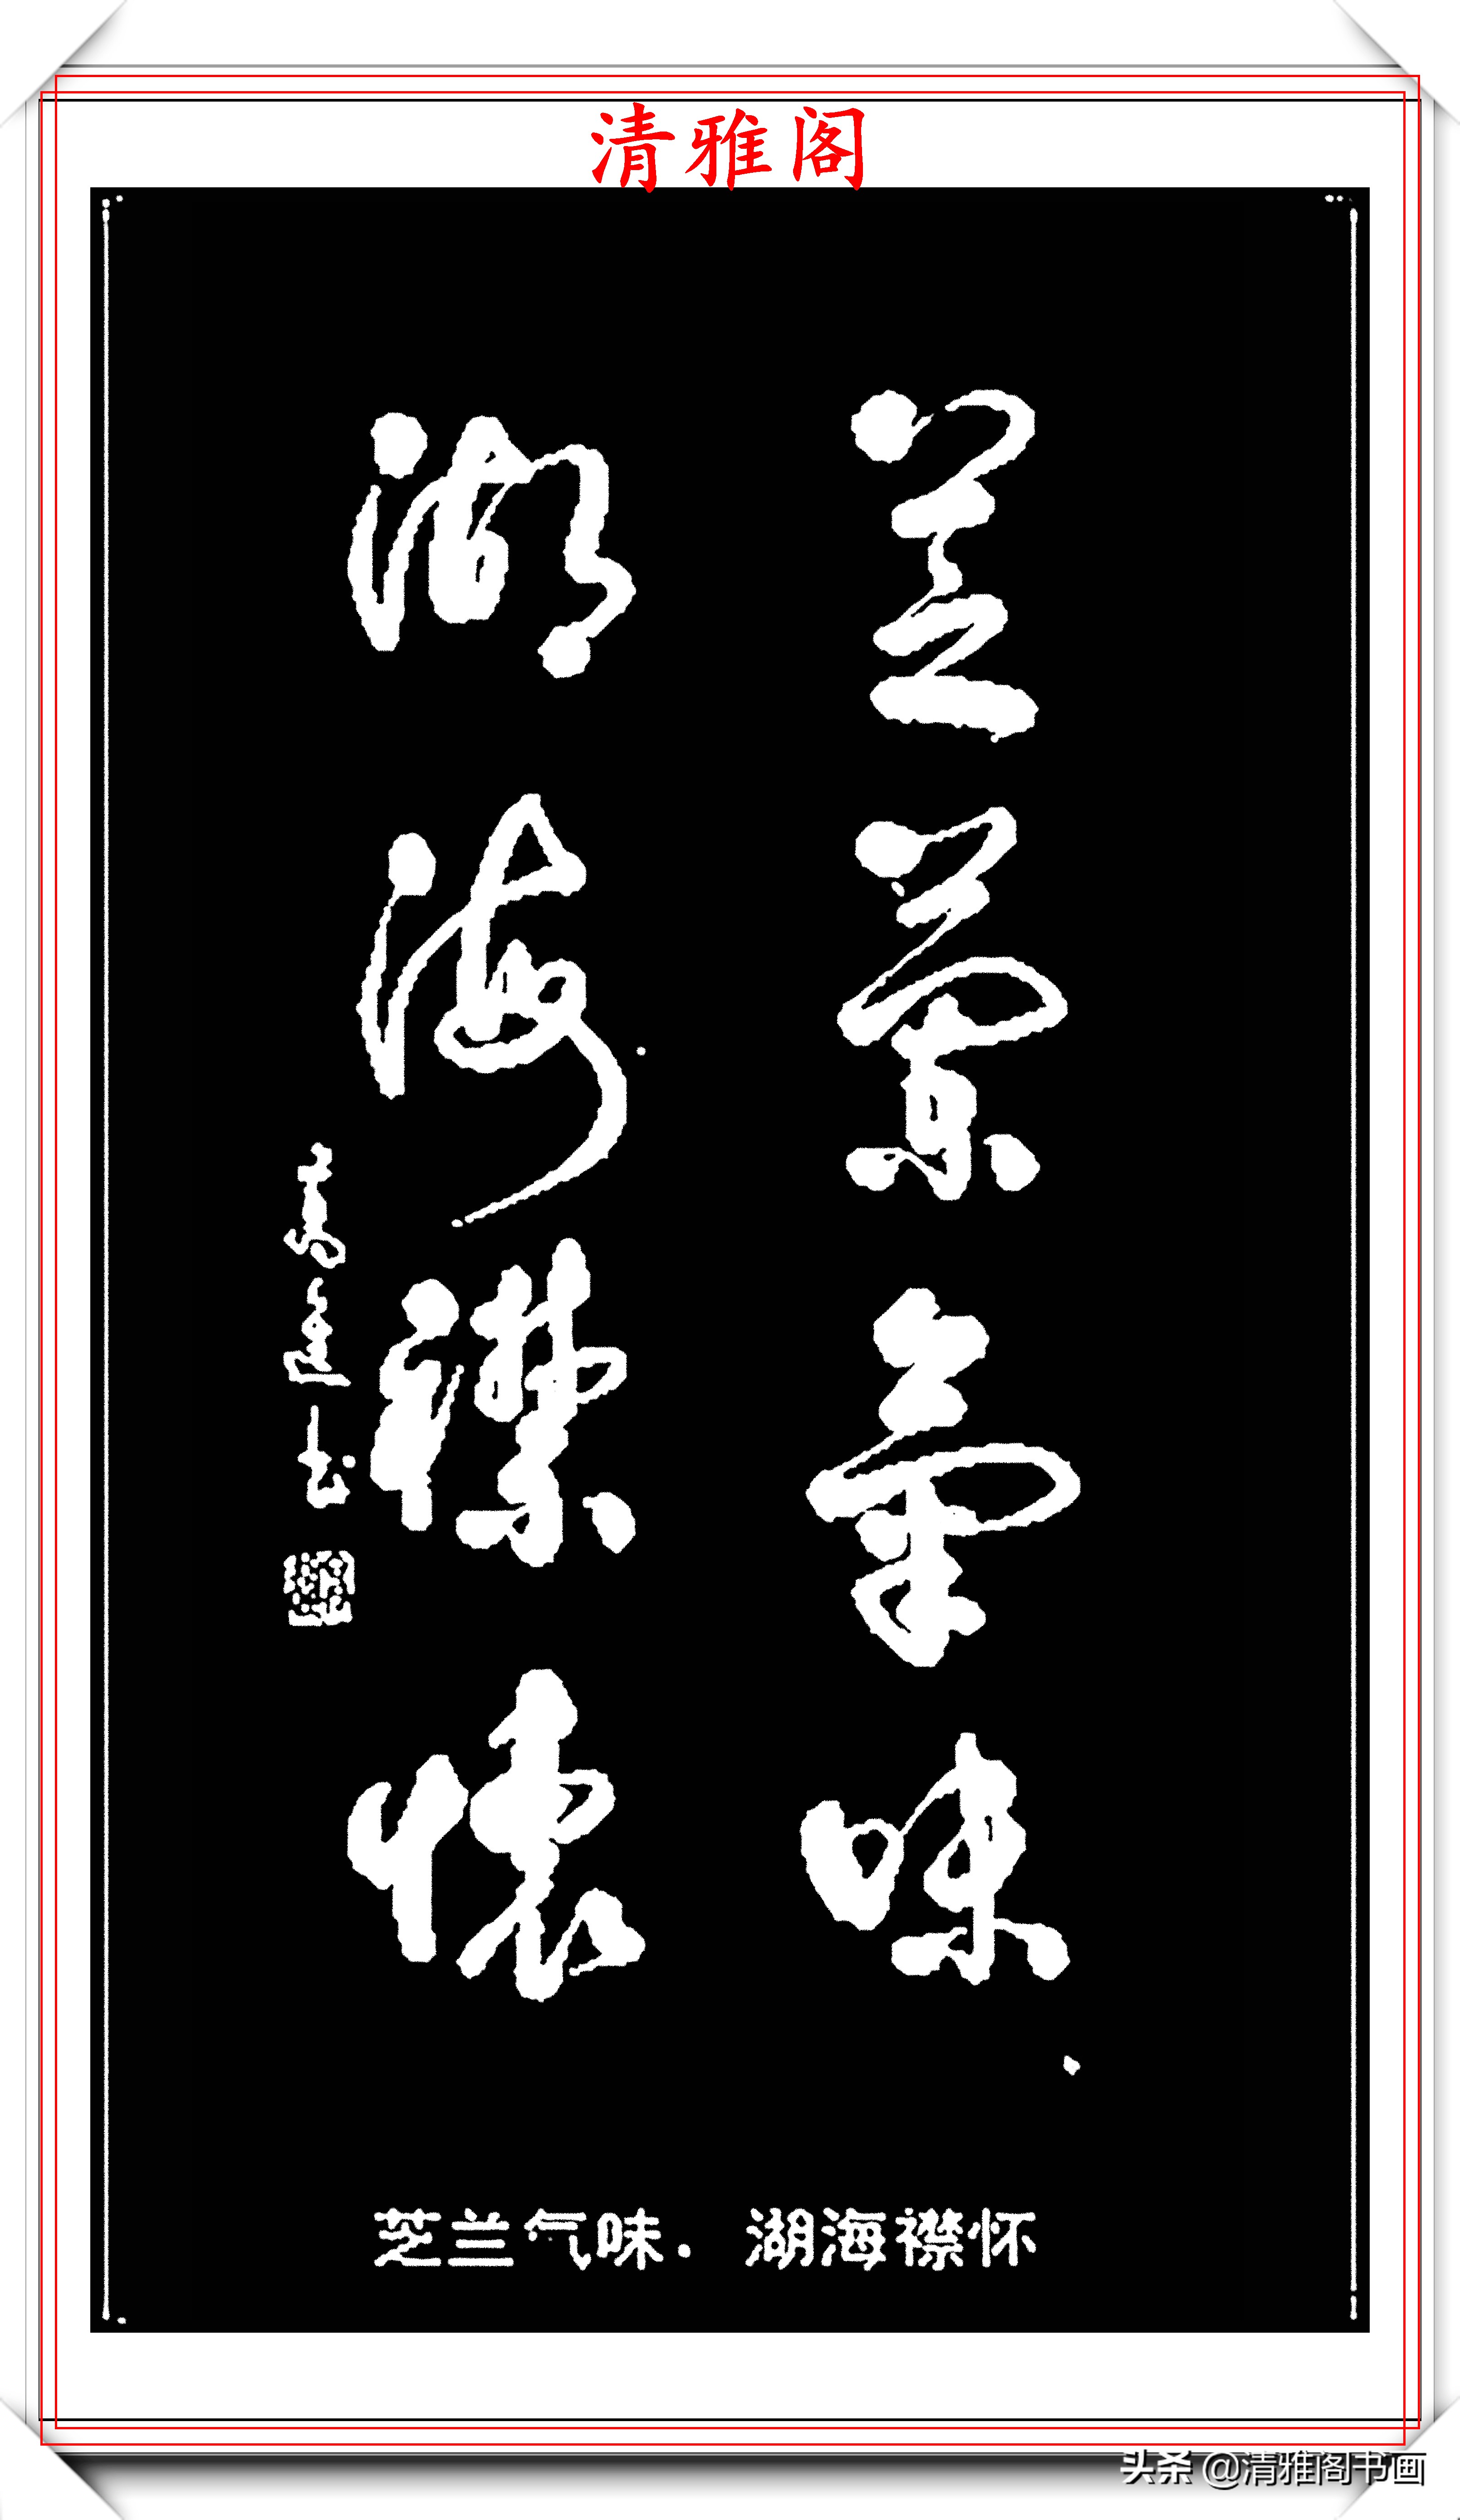 清雅阁
芝蘭氣味
湖海襟懷
芝兰气味. 湖海襟怀
头条 @清雅阁书画